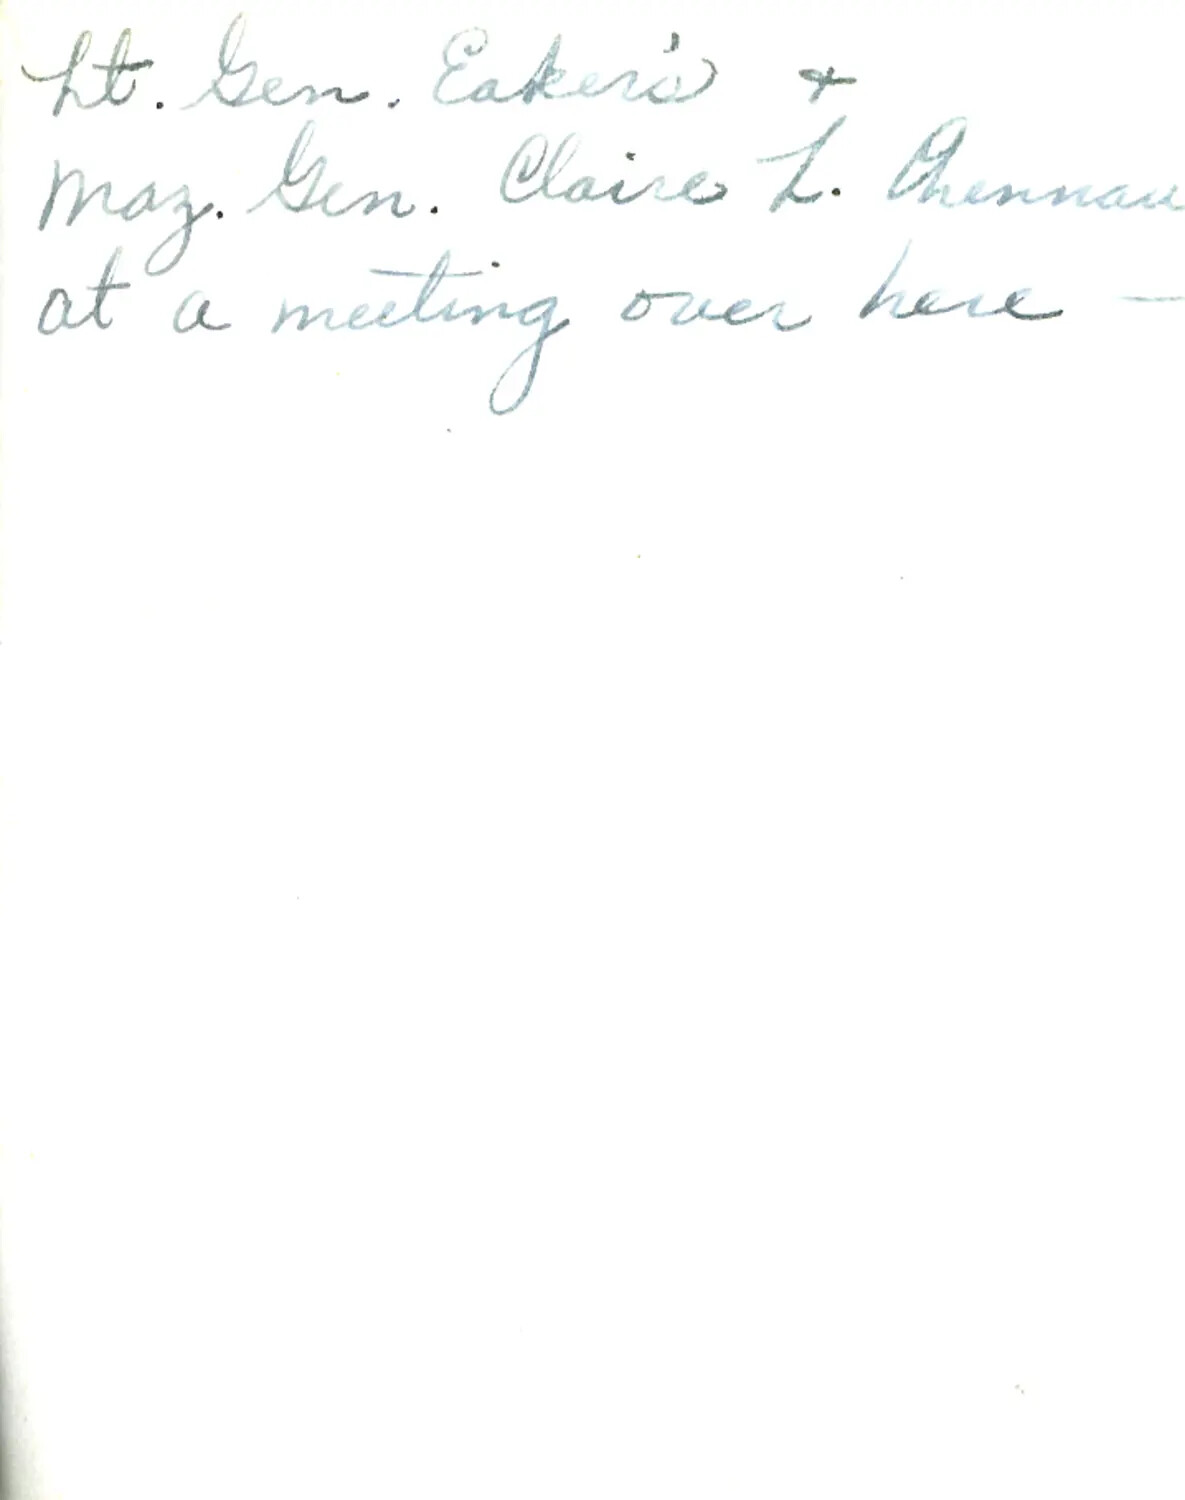 Lt. Gen. Eaker's &
Maj. Gen. Claire L. Chennau
at a meeting over here —